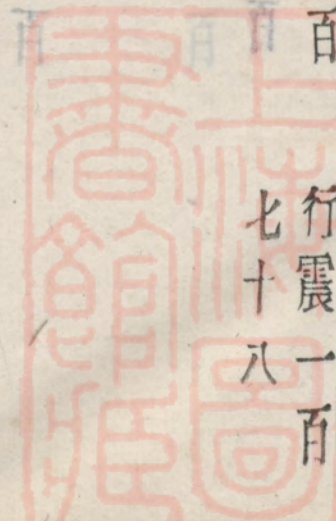 百
行震一百
七十八
上海圖
書館藏